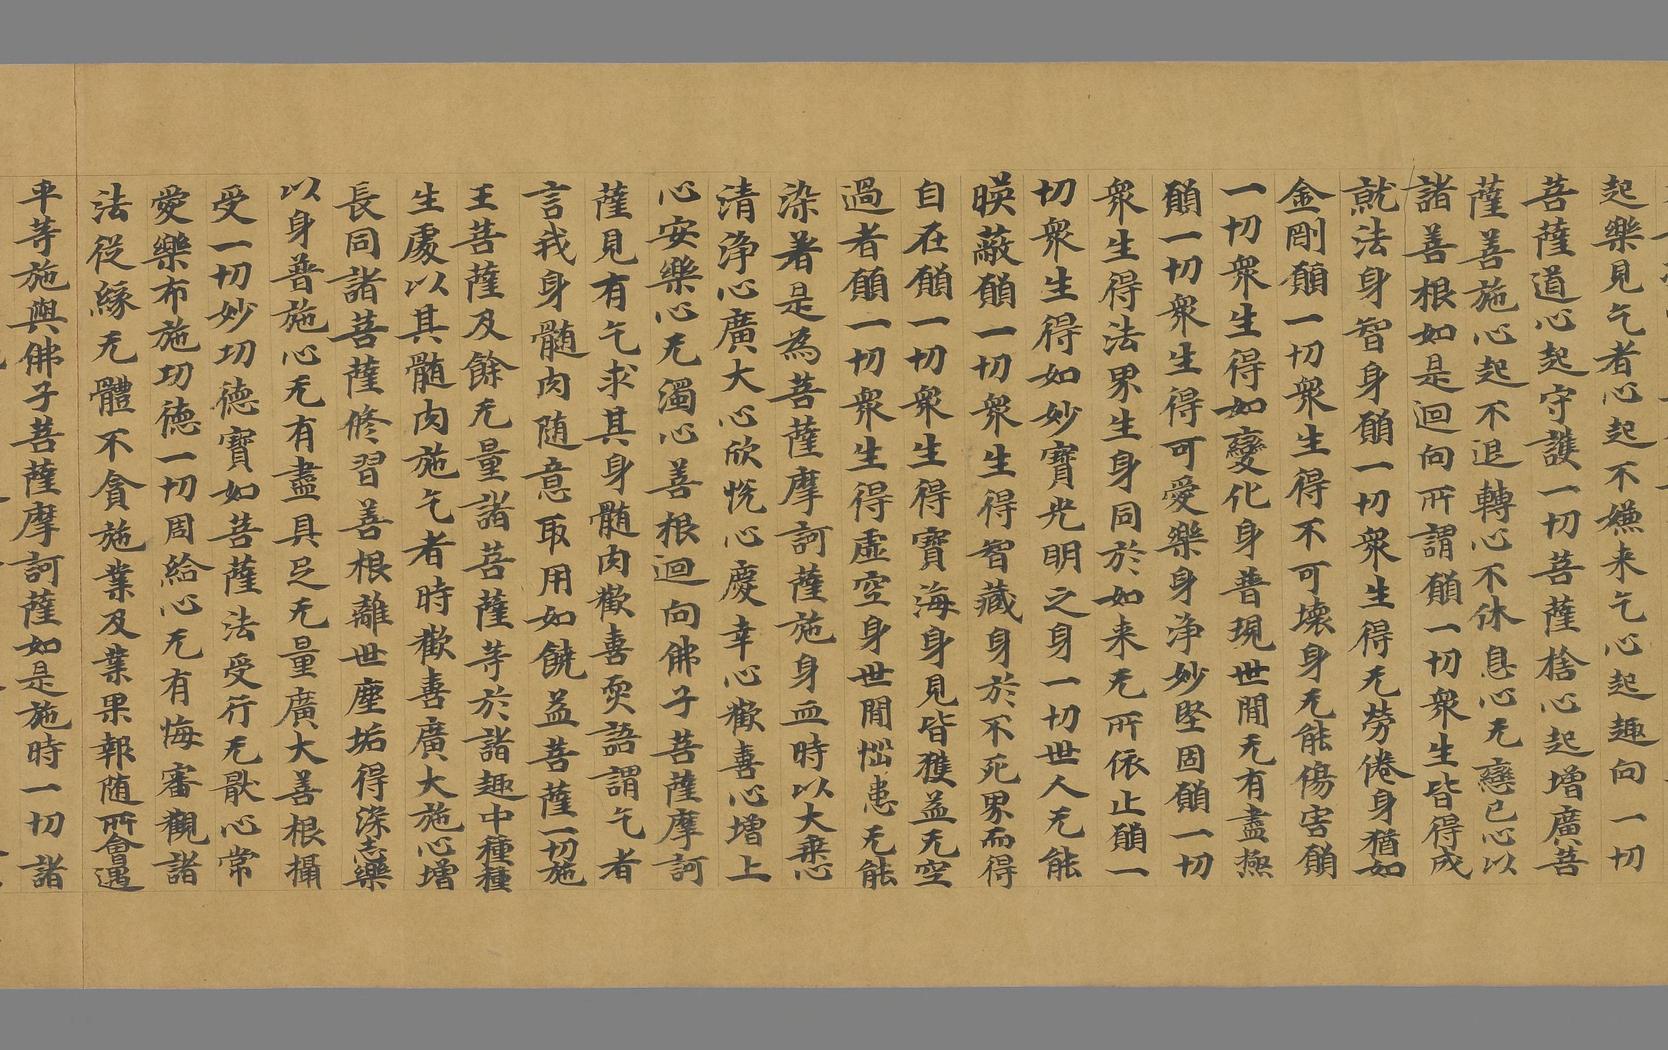 起樂見乞者心起不嫌来乞心起趣向一切
菩薩道心起守護一切菩薩捨心起增廣菩
薩善施心起不退轉心不休息心无戀己心以
諸善根如是迴向所謂願一切衆生皆得成
就法身智身願一切衆生得无勞倦身猶如
金剛願一切衆生得不可壞身无能傷害願
一切衆生得如變化身普現世間无有盡極
願一切衆生得可愛樂身淨妙堅固願一切
衆生得法界生身同於如来无所依止願一
切衆生得如妙寶光明之身一切世人无能
暎蔽願一切衆生得智藏身於不死界而得
自在願一切衆生得寶海身見皆獲益无空
過者願一切衆生得虛空身世間惱患无能
染著是為菩薩摩訶薩施身血時以大乘心
清淨心廣大心欣悅心慶幸心歡喜心增上
心安樂心无濁心善根迴向佛子菩薩摩訶
薩見有乞求其身髓肉歡喜耎語謂乞者
言我身髓肉随意取用如饒益菩薩一切施
王菩薩及餘无量諸菩薩等於諸趣中種種
生處以其髓肉施乞者時歡喜廣大施心增
長同諸菩薩修習善根離世塵垢得深志樂
以身普施心无有盡具足无量廣大善根攝
受一切妙功德寶如菩薩法受行无猒心常
愛樂布施功德一切周給心无有悔審觀諸
法從緣无體不貪施業及業果報随所會遇
平等施與佛子菩薩摩訶薩如是施時一切諸